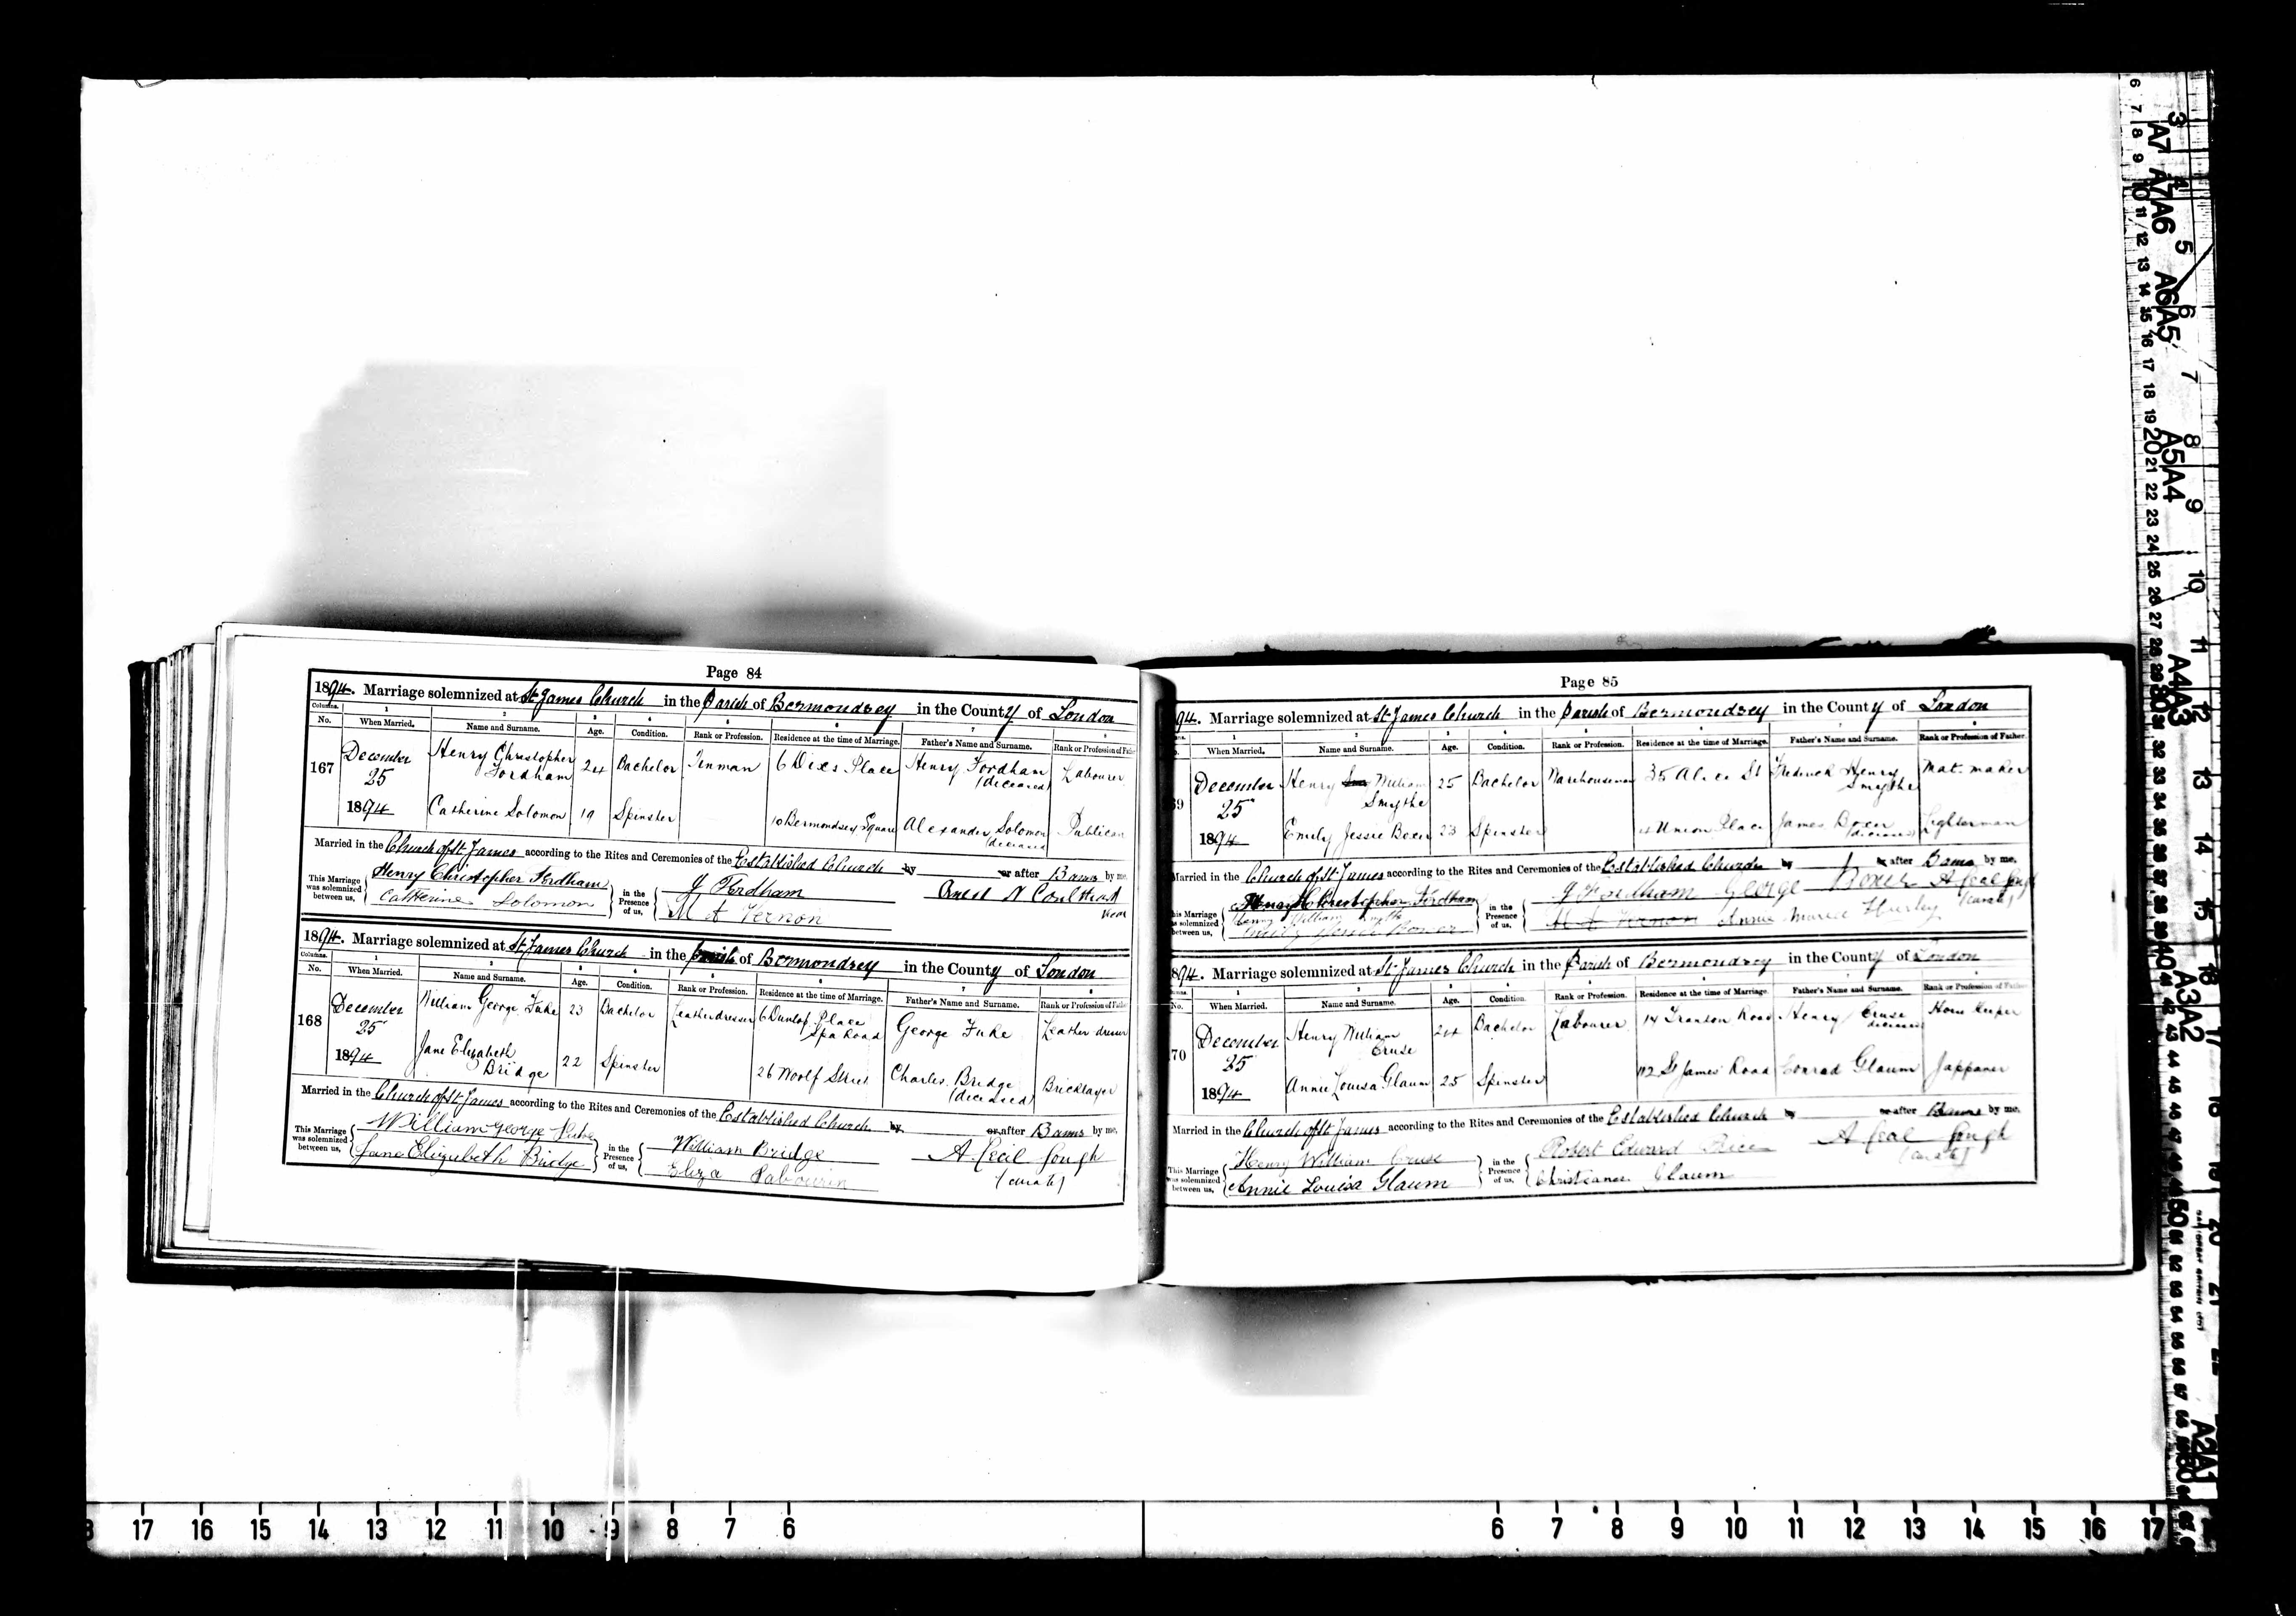 Page 84
1894. Marriage solemnized at St James Church in the Parish of Bermondsey in the County of London
Columns. 1 2 3 4 5 6 7 8
No. When Married. Name and Surname. Age. Condition. Rank or Profession. Residence at the time of Marriage. Father's Name and Surname. Rank or Profession of Father
167 December 25 1894 Henry Christopher Fordham 24 Bachelor Tinman 6 Dixs Place Henry Fordham (deceased) Labourer
Catherine Solomon 19 Spinster 10 Bermondsey Square Alexander Solomon (deceased) Publican
Married in the Church of St James according to the Rites and Ceremonies of the Established Church by or after Banns by me,
This Marriage was solemnized between us, Henry Christopher Fordham Catherine Solomon in the Presence of us, J Fordham M A Vernon Coulthead Vicar
1894. Marriage solemnized at St James Church in the Parish of Bermondsey in the County of London
Columns. 1 2 3 4 5 6 7 8
No. When Married. Name and Surname. Age. Condition. Rank or Profession. Residence at the time of Marriage. Father's Name and Surname. Rank or Profession of Father
168 December 25 1894 William George Fuke 23 Bachelor Leatherdresser 6 Dunlop Place Spa Road George Fuke Leather dresser
Jane Elizabeth Bridge 22 Spinster 26 Woolf Street Charles Bridge (deceased) Bricklayer
Married in the Church of St James according to the Rites and Ceremonies of the Established Church by or after Banns by me,
This Marriage was solemnized between us, William George Fuke Jane Elizabeth Bridge in the Presence of us, William Bridge Eliza Rabourin A Cecil Gough (curate)
Page 85
94. Marriage solemnized at St James Church in the Parish of Bermondsey in the County of London
When Married. Name and Surname. Age. Condition. Rank or Profession. Residence at the time of Marriage. Father's Name and Surname. Rank or Profession of Father.
69 December 25 1894 Henry William Smythe 25 Bachelor Warehouseman 35 Alice St Frederick Henry Smythe Mat. maker
Emily Jessie 23 Spinster Union Place James (deceased) Lighterman
Married in the Church of St James according to the Rites and Ceremonies of the Established Church by or after Banns by me,
This Marriage was solemnized between us, Henry Christopher Fordham Henry William Smythe Emily Jessie in the Presence of us, J Fordham George M A Vernon Annie Hurley A Cecil Gough (curate)
894. Marriage solemnized at St James Church in the Parish of Bermondsey in the County of London
No. When Married. Name and Surname. Age. Condition. Rank or Profession. Residence at the time of Marriage. Father's Name and Surname. Rank or Profession of Father
70 December 25 1894 Henry William Cruse 24 Bachelor Labourer 14 Tranton Road Henry Cruse deceased Horse Keeper
Annie Louisa Glaum 25 Spinster 112 St James Road Conrad Glaum Jappaner
Married in the Church of St James according to the Rites and Ceremonies of the Established Church by or after Banns by me,
This Marriage was solemnized between us, Henry William Cruse Annie Louisa Glaum in the Presence of us, Robert Edward Price Christiana Glaum A Cecil Gough (curate)
17 16 15 14 13 12 11 10 9 8 7 6
6 7 8 9 10 11 12 13 14 15 16 17